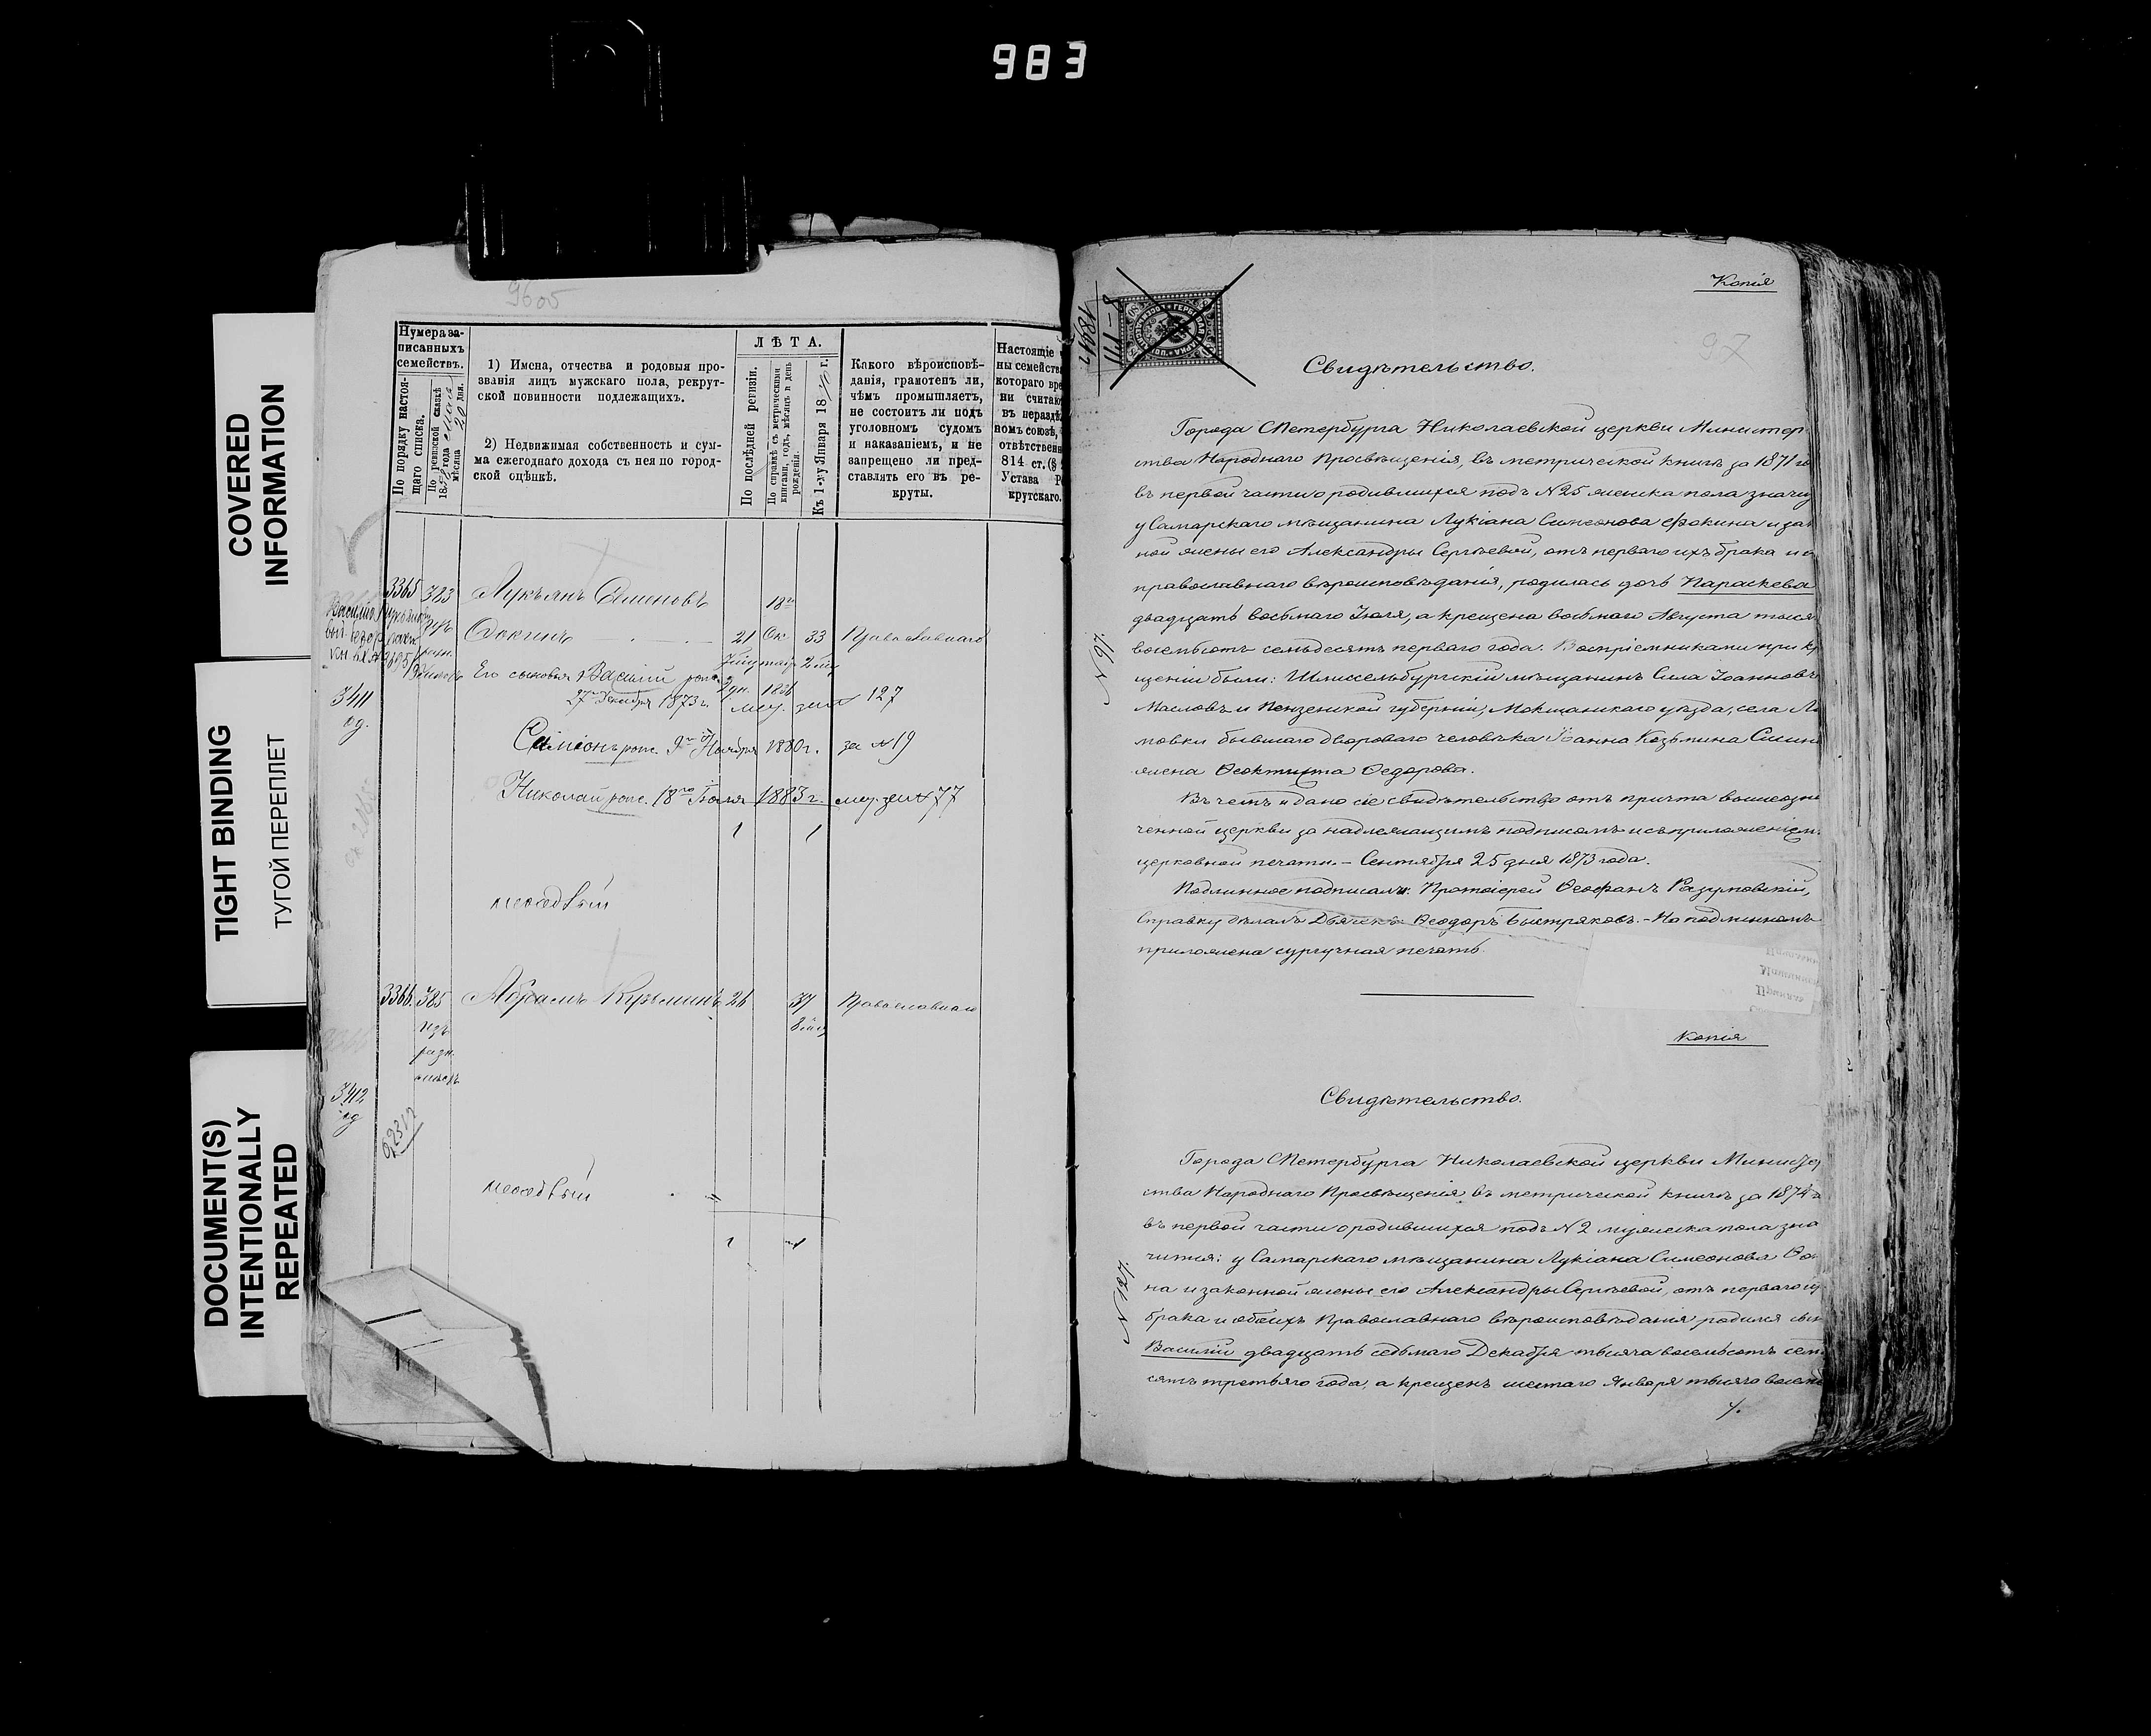 983
COVERED
INFORMATION
TIGHT BINDING
ТУГОЙ ПЕРЕПЛЕТ
DOCUMENT(S)
INTENTIONALLY
REPEATED
9605
Нумера за-
писанныхъ
семействъ.
По порядку настоя-
щаго списка.
По ревизской сказкѣ
185 года
мѣсяца 20 дня.
1) Имена, отчества и родовыя про-
званія лицъ мужскаго пола, рекрут-
ской повинности подлежащихъ.
2) Недвижимая собственность и сум-
ма ежегоднаго дохода съ нея по город-
ской оцѣнкѣ.
ЛѢТА.
По послѣдней ревизіи.
По справкѣ съ метрическими
книгами, годъ, мѣсяцъ и день
рожденія.
Къ 1-му Января 18 г.
Какого вѣроисповѣ-
данія, грамотенъ ли,
чѣмъ промышляетъ,
не состоитъ ли подъ
уголовномъ судомъ
и наказаніемъ, и не
запрещено ли пред-
ставлять его въ ре-
круты.
Настоящіе
ны семейства
котораго вре
ни считаю
въ нераздѣ
номъ союзѣ,
отвѣтственн
814 ст. (§
Устава Р
крутскаго.
3365 383 Лукъянъ Семеновъ
Фокинъ 21 33 Православнаго
Его сыновья Василій рож.
27го Декабря 1873 г. 127
3411
од.
Симеонъ рож. 9го Ноября 1880 г. за №19
Николай рож. 18го Іюля 1883 г. 77
1 1
3366 385 Абрамъ Кузьминъ 26 37 Православнаго
изъ
разн.
3412
од
1 1
Копія
97
Свидѣтельство.
Города СПетербурга Николаевской церкви Министер
ства Народнаго Просвѣщенія, въ метрической книгѣ за 1871 го
въ первой части о родившихся подъ №25 женска пола значи
у Самарскаго мѣщанина Лукіана Симеонова Фокина и зак
ной жены его Александры Сергѣевой, отъ перваго ихъ брака и о
православнаго вѣроисповѣданія, родилась дочь Параскева
двадцать восьмаго Іюля, а крещена восьмаго Августа тыся
восемьсотъ семьдесятъ перваго года. Воспріемниками при кр
щеніи были: Шлиссельбургскій мѣщанинъ Сила Іоанновъ
Масловъ и Пензенской губерніи, Мокшанскаго уѣзда, села Ло
мовки бывшаго двороваго человѣка Іоанна Козьмина Симин
жена Ѳеоктиста Ѳедорова.
Въ чемъ и дано сіе свидѣтельство отъ причта вышеозна
ченной церкви за надлежащимъ подписомъ и съ приложеніем
церковной печати. – Сентября 25 дня 1873 года.
Подлинное подписали: Протоіерей Ѳеофанъ Разумовскій,
Справку дѣлалъ Дьячекъ Ѳеодоръ Быстряковъ. – На подлинномъ
приложена сургучная печать.
№ 16.
Копія
Свидѣтельство.
Города СПетербурга Николаевской церкви Министер
ства Народнаго Просвѣщенія въ метрической книгѣ за 1874
въ первой части о родившихся подъ №2 мужеска пола зна
чится: у Самарскаго мѣщанина Лукіана Симеонова Фок
на и законной жены его Александры Сергѣевой, отъ перваго их
брака и обоихъ Православнаго вѣроисповѣданія родился сын
Василій двадцать седьмаго Декабря тысяча восемьсотъ сем
сятъ третьяго года, а крещенъ шестаго Января тысяча восем
№ 127.